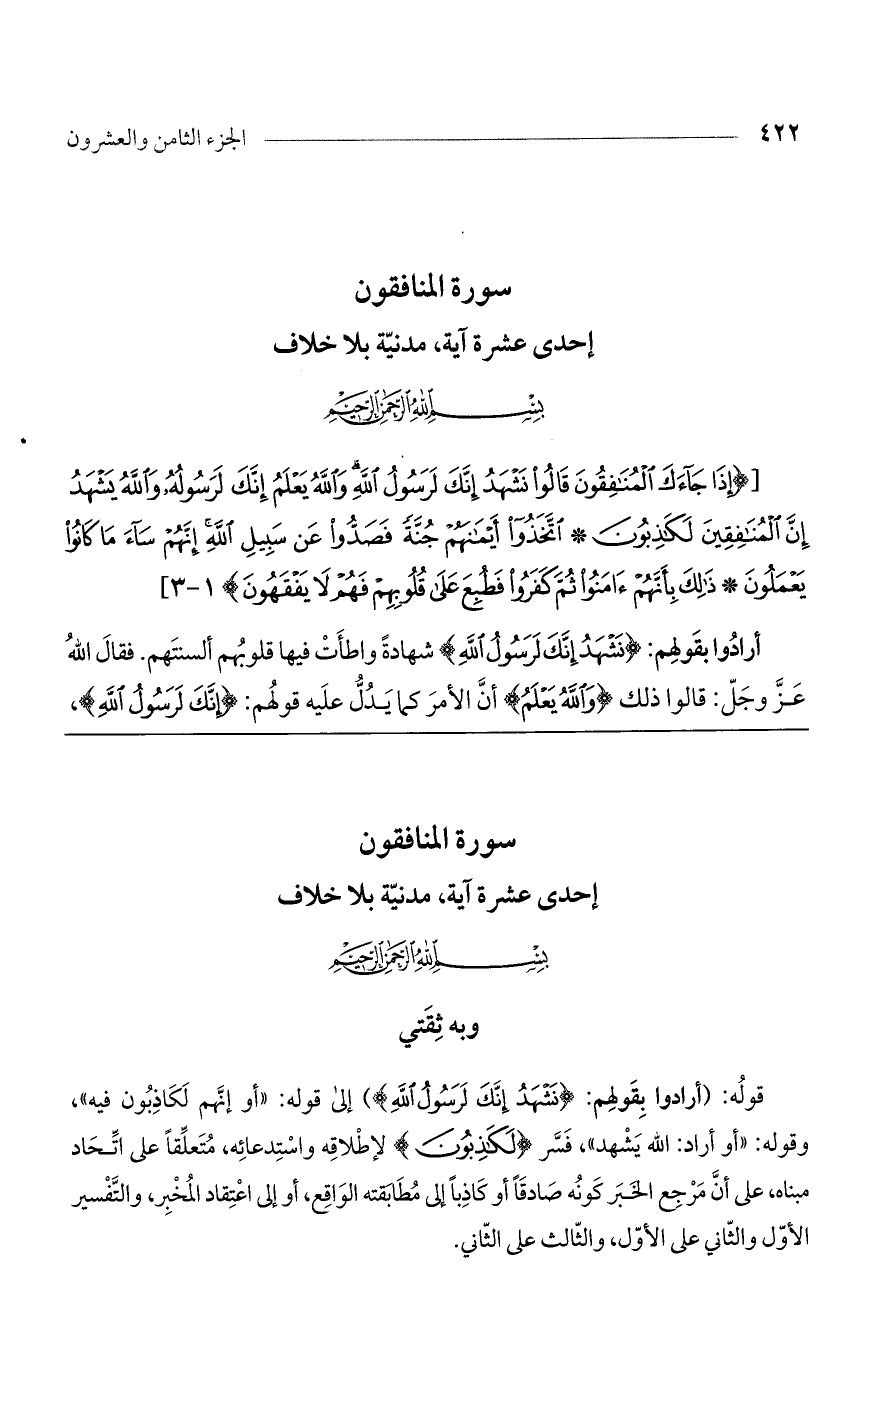 ٤٢٢ الجزء الثامن والعشرون
سورة المنافقون
إحدى عشرة آية، مدنيّة بلا خلاف
بِسْمِ اللَّهِ الرَّحْمَٰنِ الرَّحِيمِ
[﴿إِذَا جَآءَكَ ٱلْمُنَٰفِقُونَ قَالُواْ نَشْهَدُ إِنَّكَ لَرَسُولُ ٱللَّهِۗ وَٱللَّهُ يَعْلَمُ إِنَّكَ لَرَسُولُهُۥ وَٱللَّهُ يَشْهَدُ
إِنَّ ٱلْمُنَٰفِقِينَ لَكَٰذِبُونَ * ٱتَّخَذُوٓاْ أَيْمَٰنَهُمْ جُنَّةً فَصَدُّواْ عَن سَبِيلِ ٱللَّهِۚ إِنَّهُمْ سَآءَ مَا كَانُواْ
يَعْمَلُونَ * ذَٰلِكَ بِأَنَّهُمْ ءَامَنُواْ ثُمَّ كَفَرُواْ فَطُبِعَ عَلَىٰ قُلُوبِهِمْ فَهُمْ لَا يَفْقَهُونَ﴾ ١-٣]
أرادُوا بقَولهِم: ﴿نَشْهَدُ إِنَّكَ لَرَسُولُ ٱللَّهِ﴾ شهادةً واطأَتْ فيها قلوبُهم ألسنتَهم. فقالَ اللهُ
عَـزَّ وجَلّ: قالوا ذلك ﴿وَٱللَّهُ يَعْلَمُ﴾ أنَّ الأمرَ كما يَـدُلُّ علَيه قولُهم: ﴿إِنَّكَ لَرَسُولُ ٱللَّهِ﴾،
سورة المنافقون
إحدى عشرة آية، مدنيّة بلا خلاف
بِسْمِ اللَّهِ الرَّحْمَٰنِ الرَّحِيمِ
وبه ثِقَتي
قولُه: (أرادوا بِقَولهِم: ﴿نَشْهَدُ إِنَّكَ لَرَسُولُ ٱللَّهِ﴾) إلىٰ قوله: «أو إنَّهم لَكَاذِبُون فيه»،
وقوله: «أو أراد: الله يَشْهد»، فَسَّر ﴿لَكَٰذِبُونَ﴾ لإطْلاقِه واسْتِدعائِه، مُتَعلِّقاً على اتِّـحَاد
مبناه، على أنَّ مَرْجِع الخَبَر كونُه صَادقَاً أو كَاذِباً إلى مُطَابَقته الوَاقِع، أو إلى اعْتِقاد المُخْبِر، والتَّفْسير
الأوّل والثّاني على الأوّل، والثّالث على الثّاني.